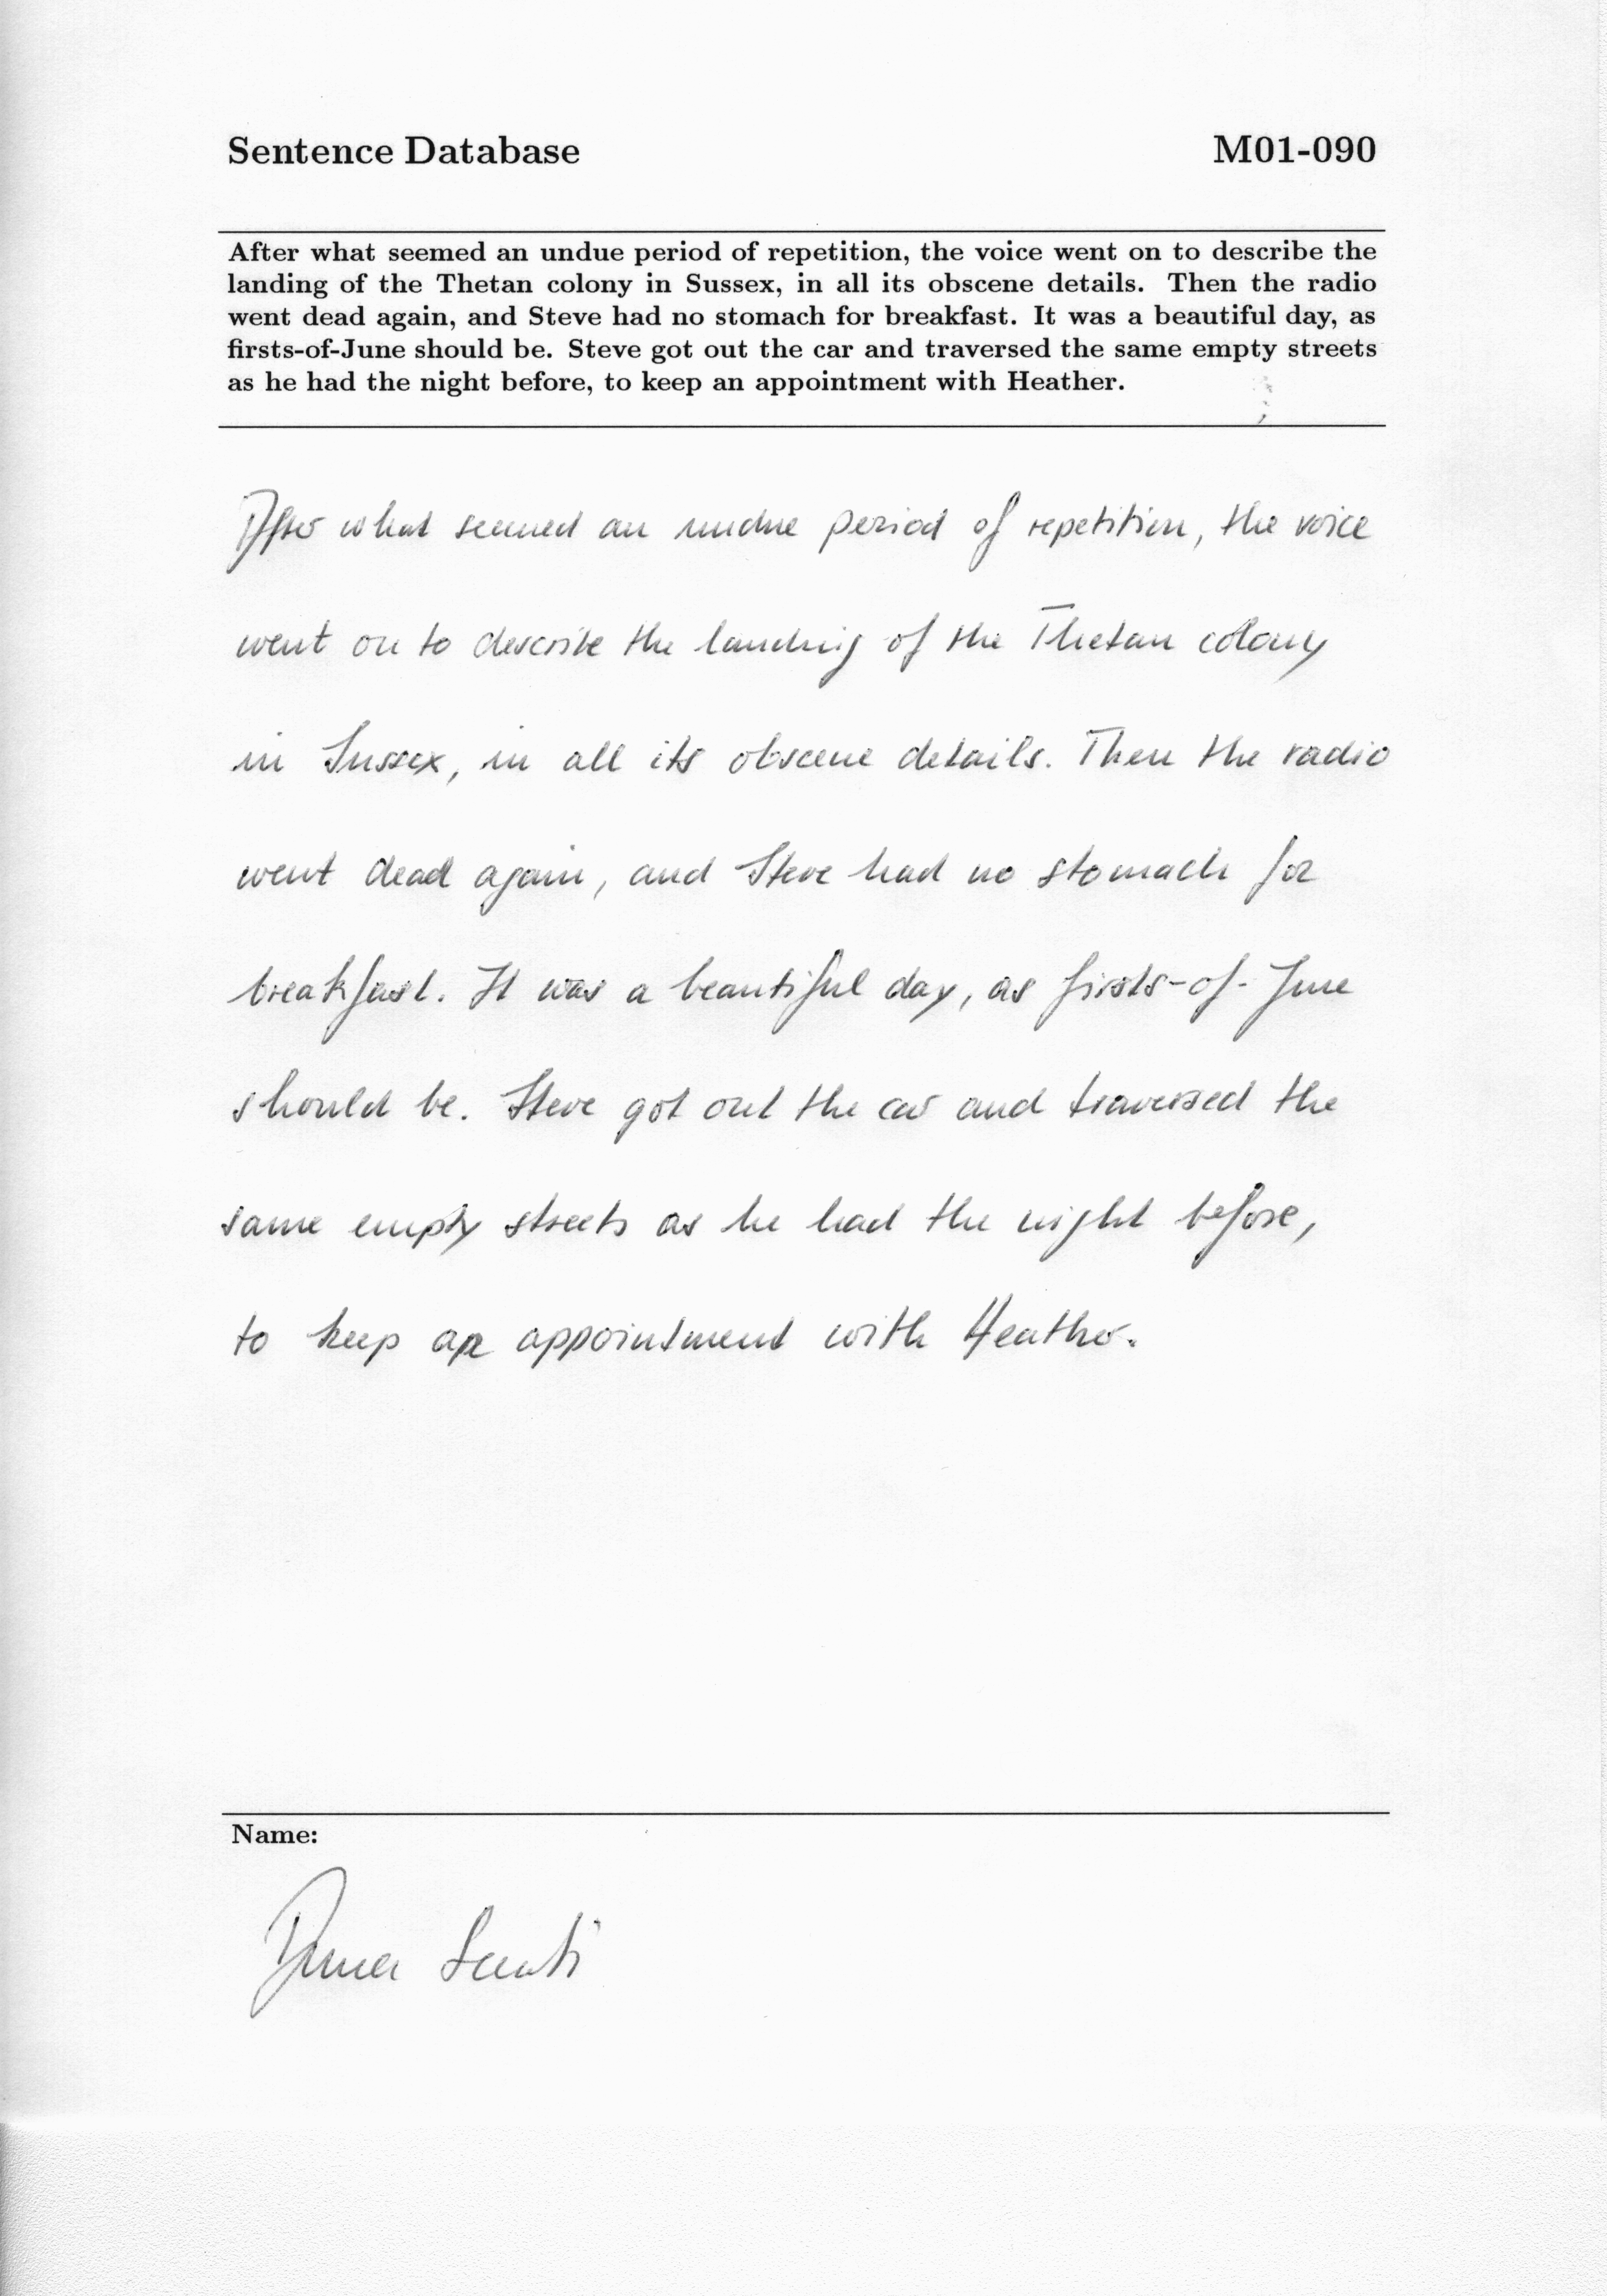 Sentence Database M01-090
After what seemed an undue period of repetition, the voice went on to describe the
landing of the Thetan colony in Sussex, in all its obscene details. Then the radio
went dead again, and Steve had no stomach for breakfast. It was a beautiful day, as
firsts-of-June should be. Steve got out the car and traversed the same empty streets
as he had the night before, to keep an appointment with Heather.
After what seemed an undue period of repetition, the voice
went on to describe the landing of the Thetan colony
in Sussex, in all its obscene details. Then the radio
went dead again, and Steve had no stomach for
breakfast. It was a beautiful day, as firsts-of-June
should be. Steve got out the car and traversed the
same empty streets as he had the night before,
to keep an appointment with Heather.
Name: